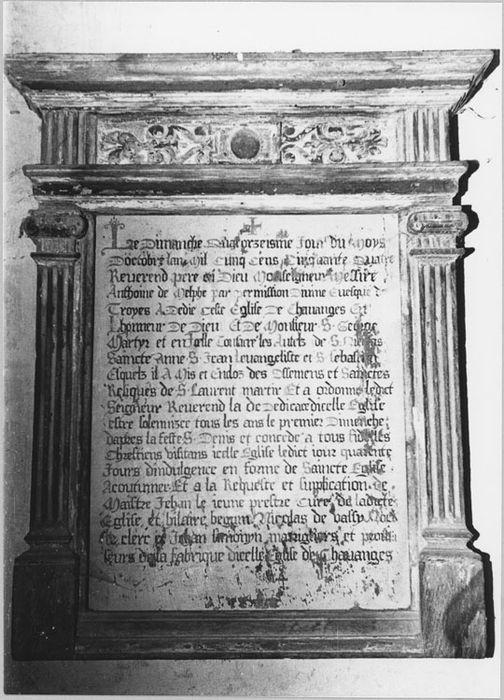 Le Dimanche vingtprezeisme Jour du Moys
Doctobre lan Mil Cinq Cens Cinquante Quatre
Reverend pere en Dieu Monseigneur Messire
Anthoine de par permission Divine Evesque de
Troyes A Dedie Ceste Eglise De Chavanges En
Lhonneur De Dieu Et De Monsieur S George
Martyr et en Icelle les Autelz de S Nicolas
Saincte Anne S Jean Levangeliste et S Sebastien
Esquelz il A Mis et Encloz des Ossemens et Sainctes
Reliques de S Laurent martir Et a ordonne ledict
Seigneur Reverend la de Dedicace dicelle Eglise
estre solemnizee tous les ans le premier Dimenche
dapres la feste S Denis et concede a tous fidelles
Chrestiens visitans icelle Eglise ledict jour quarante
Jours dindulgence en forme de Saincte Eglise
Acoutumee Et a la Requeste et supplication de
Maistre Jehan le jeune prestre Cure de ladicte
Eglise et hilaire begun Nicolas de vassy
le clerc et Jehan marigliers et provi
seurs de la fabrique dicelle Eglise de Chavanges